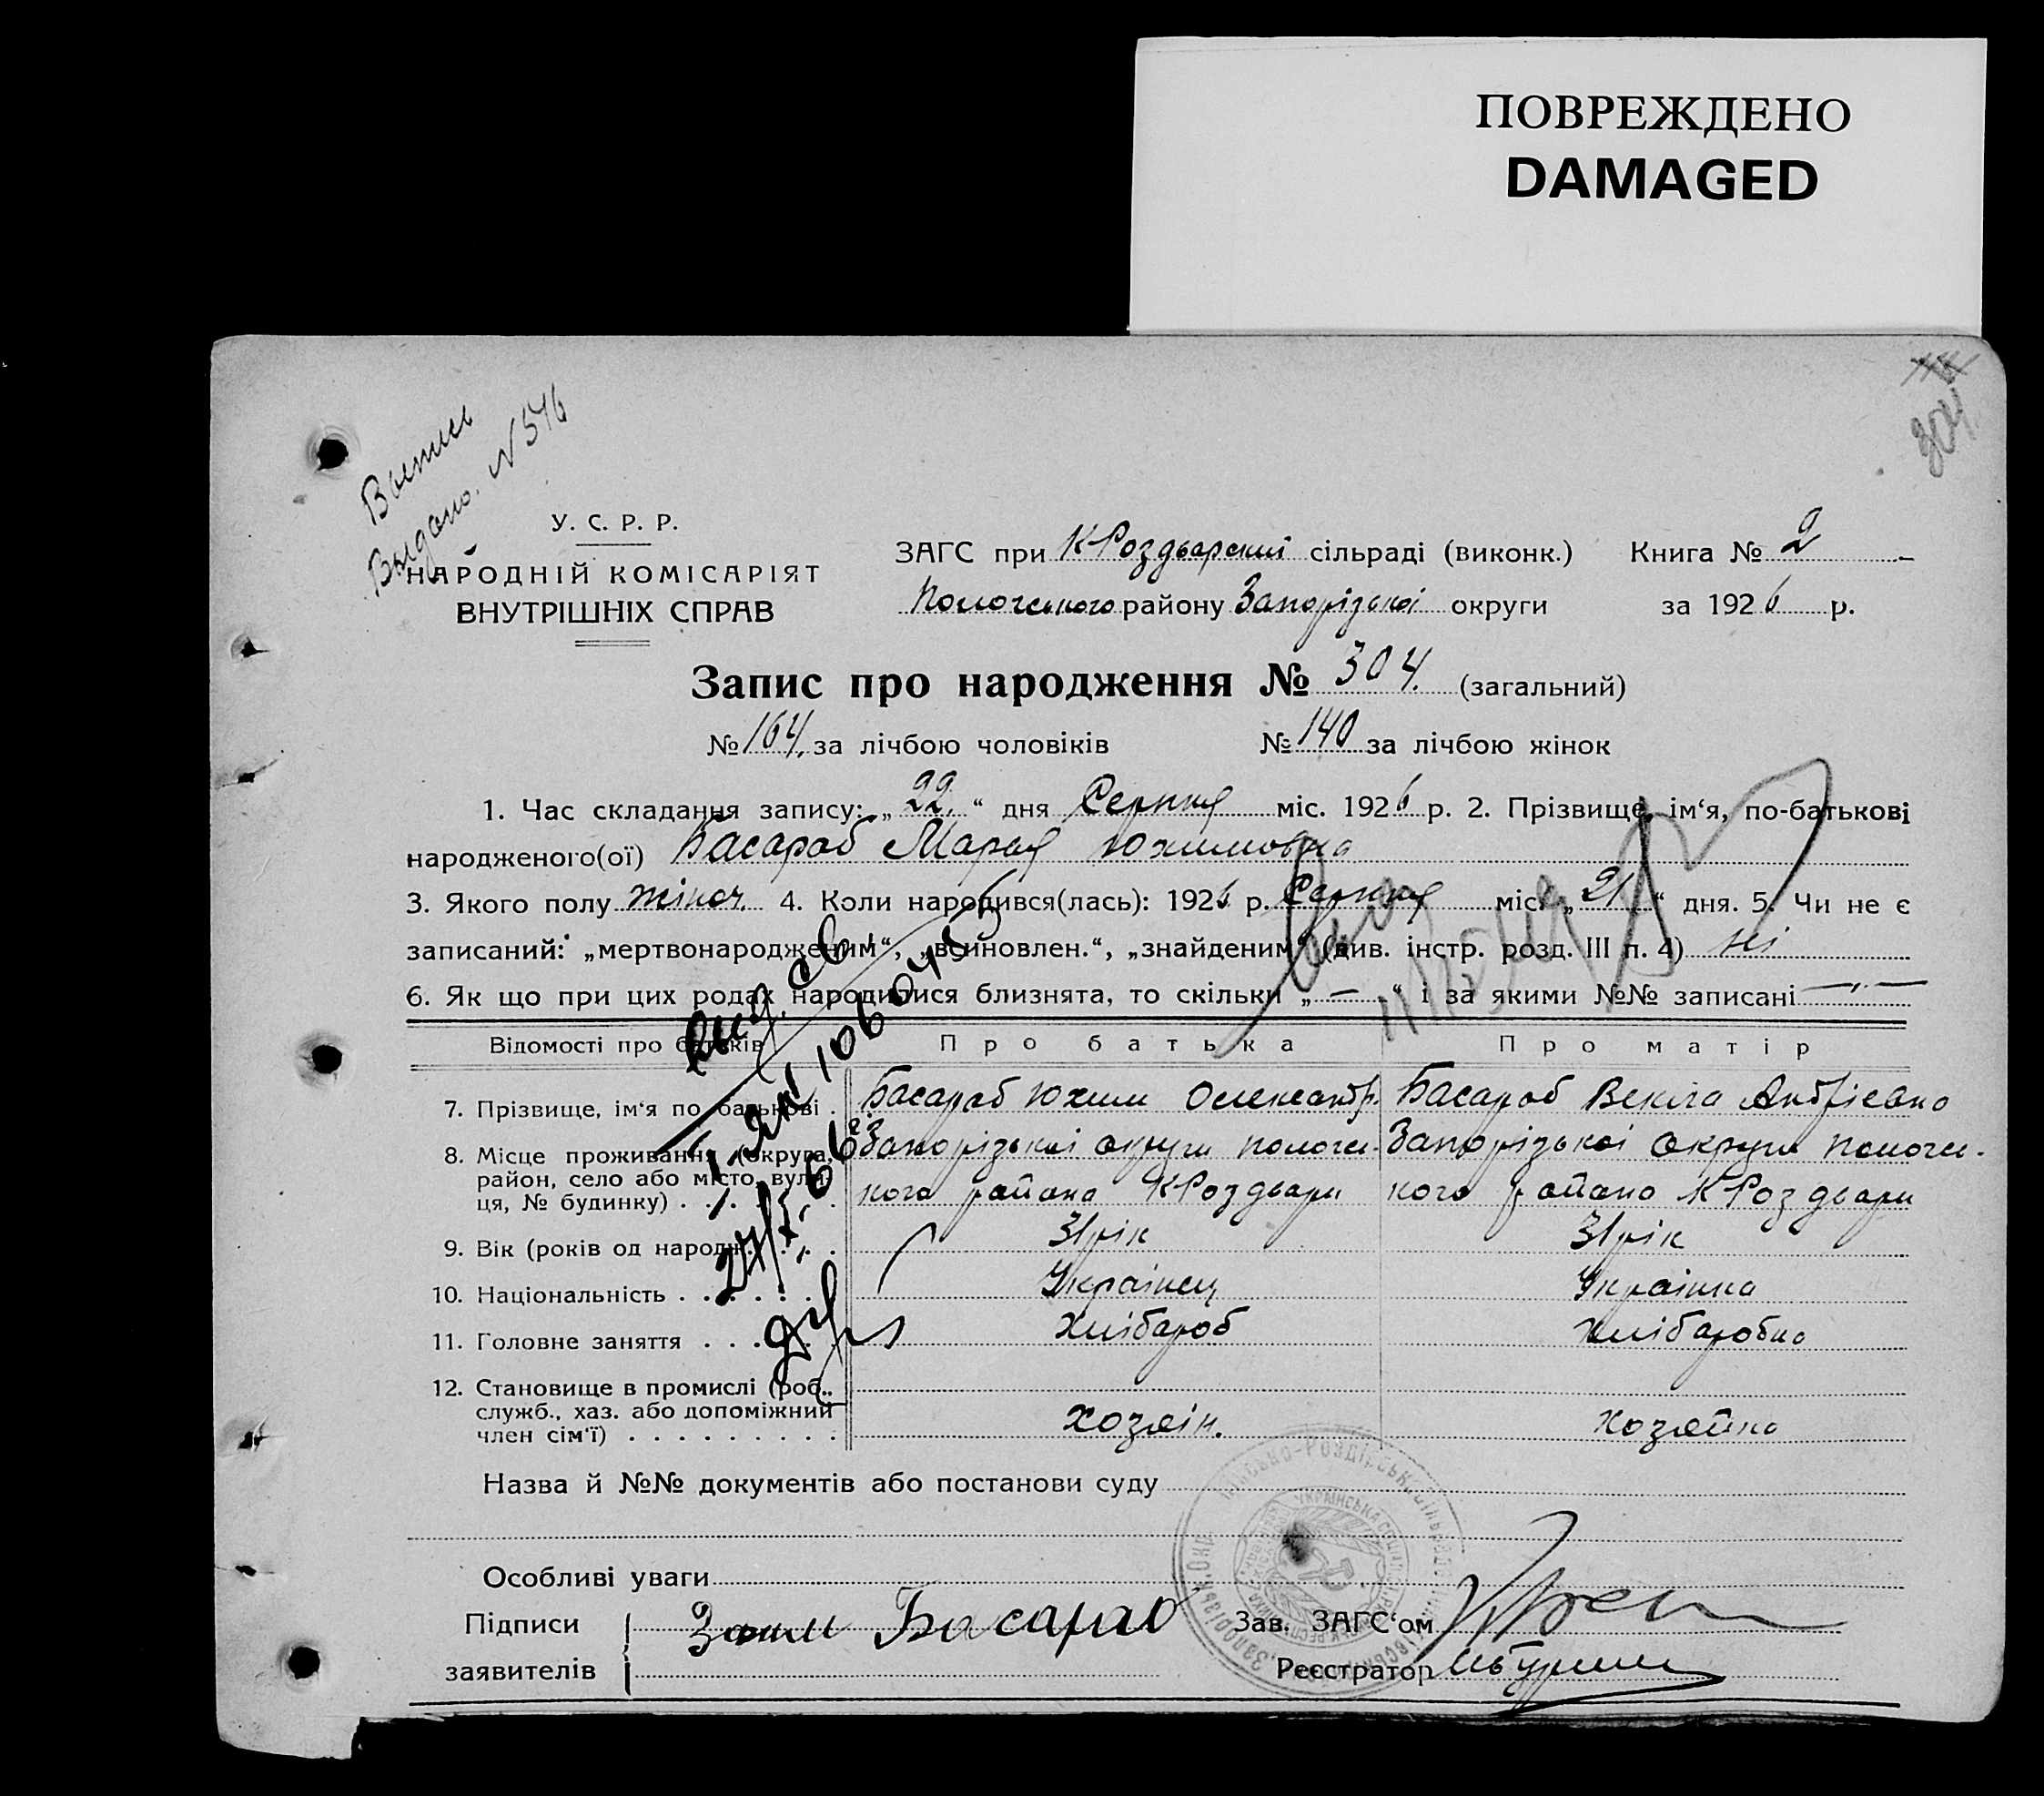 ПОВРЕЖДЕНО
DAMAGED
304
Выдано. N 546
У. С. Р. Р.
НАРОДНІЙ КОМІСАРІЯТ
ВНУТРІШНІХ СПРАВ
ЗАГС при К Роздварский сільраді (виконк.) Книга № 2
Пологського району Запорізької округи за 1926 р.
Запис про народження № 304. (загальний)
№ 164. за лічбою чоловіків № 140 за лічбою жінок
1. Час складання запису: „22.“ дня Серпня міс. 1926 р. 2. Прізвище, ім‘я, по-батькові
народженого(ої) Басараб Мария Юхимовна
3. Якого полу жіноч. 4. Коли народився(лась): 1926 р. Серпня міс. „21“ дня. 5. Чи не є
записаний: „мертвонародженим“, „всиновлен.“, „знайденим“ (див. інстр. розд. III п. 4) ні
6. Як що при цих родах народилися близнята, то скільки „—“ і за якими №№ записані
Відомості про батьків Про батька Про матір
7. Прізвище, ім‘я по батькові . Басараб Юхим Олександр. Басараб Векла Андрієвна
8. Місце проживання (округа, Запорізькоі округи пологс- Запорізькоі округи пологс-
район, село або місто, вули-
ця, № будинку) . . . кого района К Роздвари кого района К Роздвари
9. Вік (років од народж. . . . 31 рік 31 рік
10. Національність . . . . . . Украінец Украінка
11. Головне заняття . . . . . Хлібароб Хлібаробка
12. Становище в промислі (роб.,
служб., хаз. або допоміжний
член сім‘ї) . . . . . . . . . Хозяін. Хозяйка
Назва й №№ документів або постанови суду
Особливі уваги
Підписи Басараб Зав. ЗАГС‘ом
заявителів Реєстратор